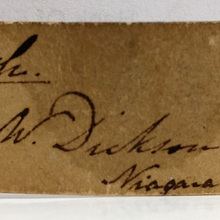 W. Dickson
Niagara